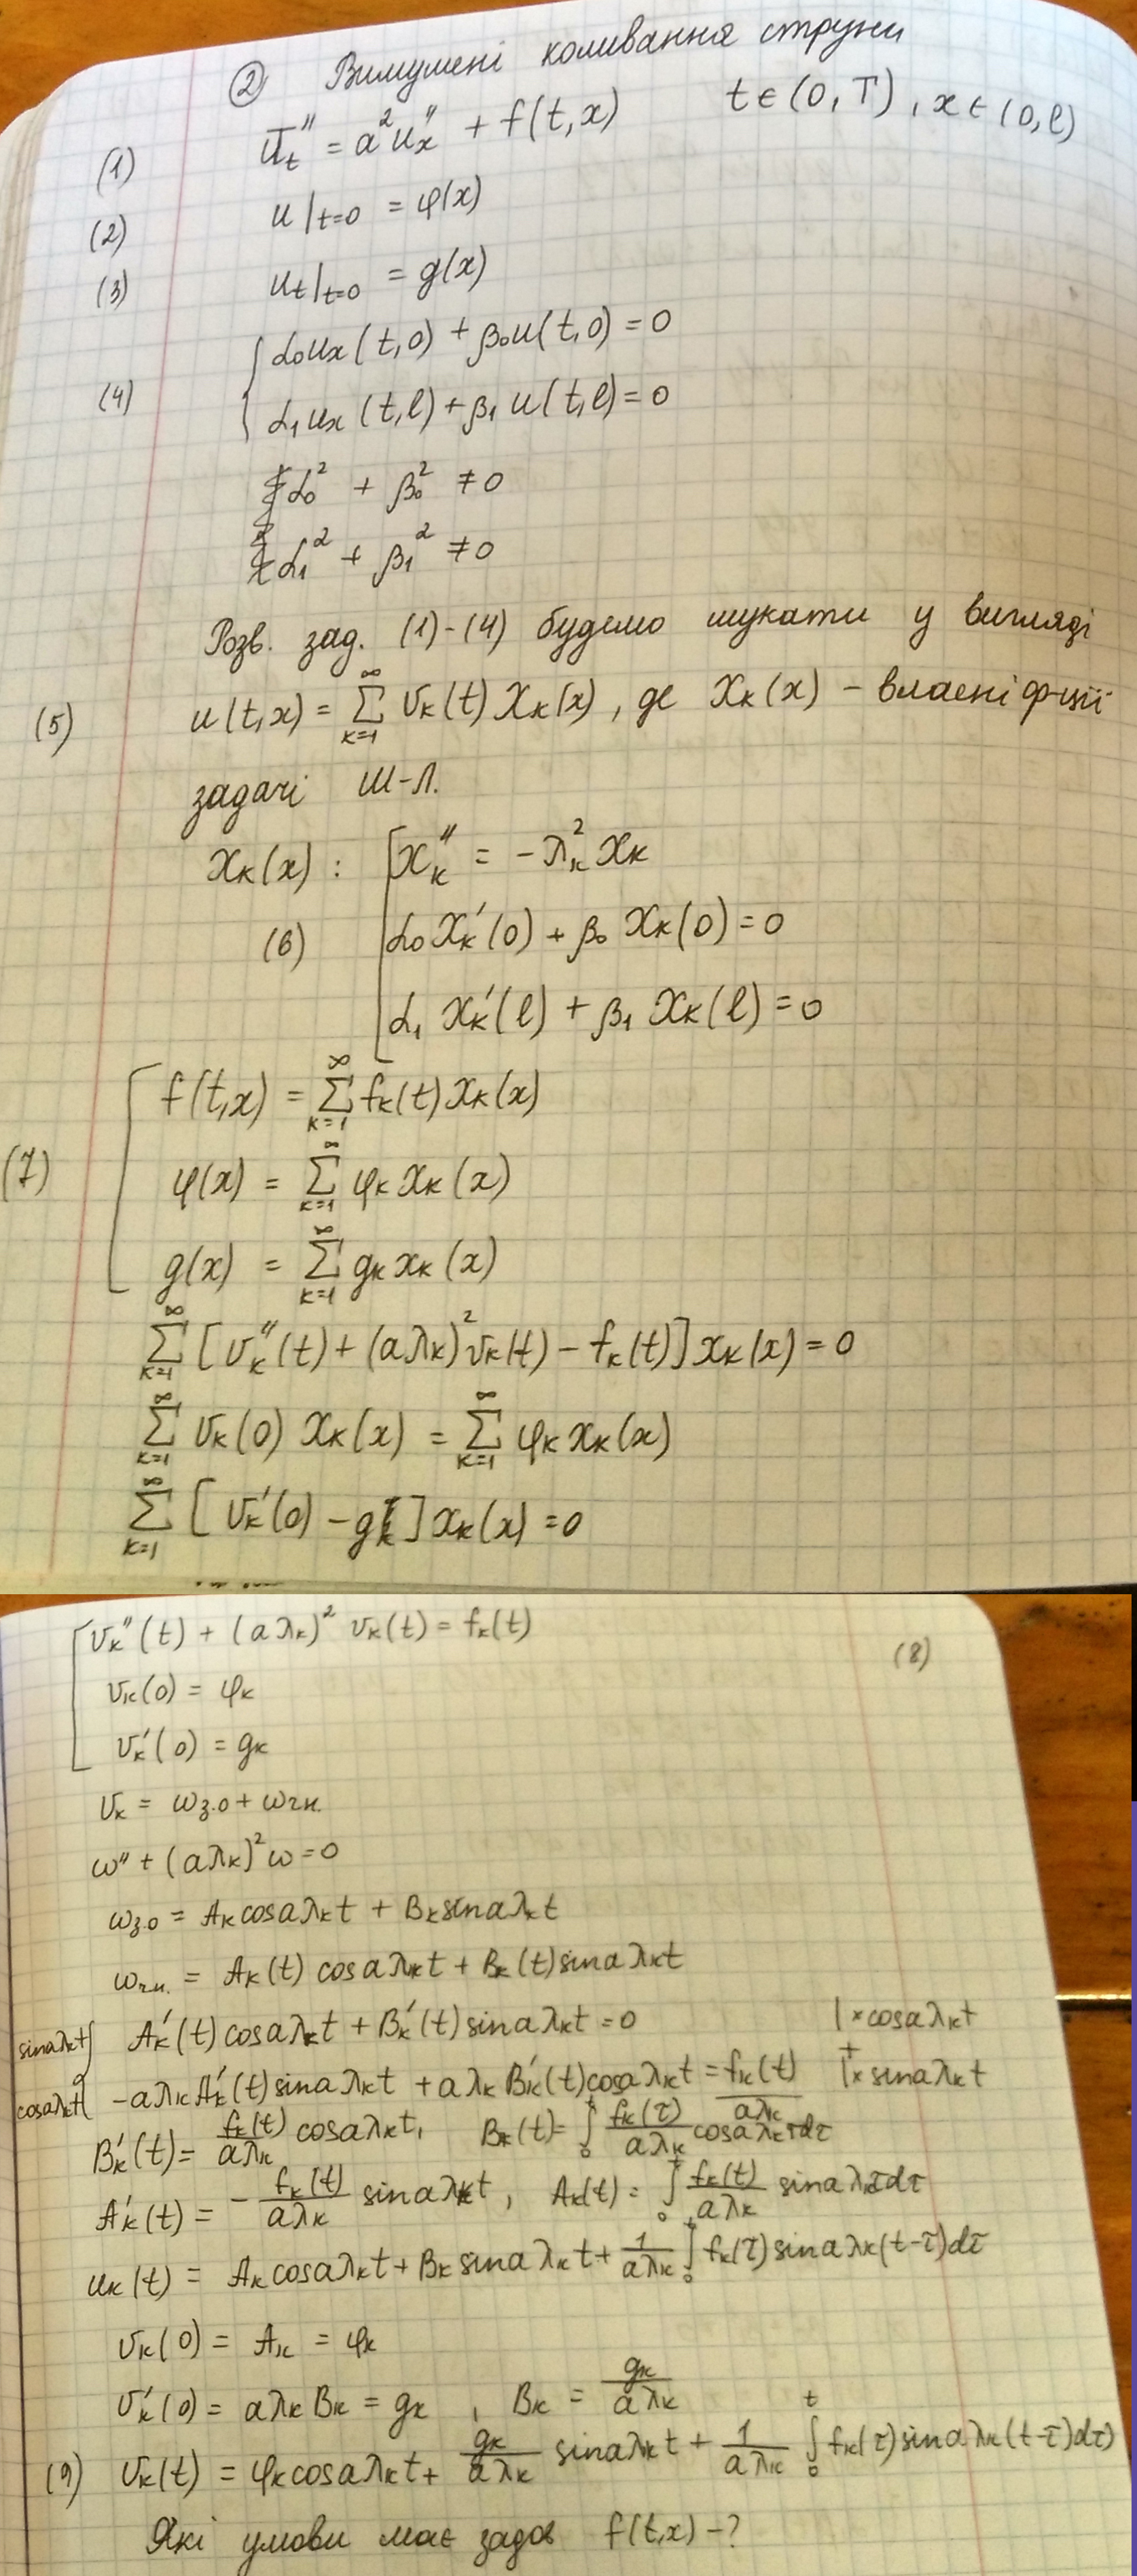 ② Вимушені коливання струни
(1) U''ₜ = a²u''ₓ + f(t,x) t∈(0,T), x∈(0,l)
(2) u|t=0 = φ(x)
(3) uₜ|t=0 = g(x)
α₀uₓ(t,0) + β₀u(t,0) = 0
(4) α₁uₓ(t,l) + β₁u(t,l) = 0
α₀² + β₀² ≠ 0
α₁² + β₁² ≠ 0
Розв. зад. (1)-(4) будемо шукати у вигляді
(5) u(t,x) = ∑_{k=1}^{∞} v_k(t) X_k(x), де X_k(x) – власні ф-ції
задачі Ш-Л.
X_k(x): X_k'' = -λ_k² X_k
(6) α₀X_k'(0) + β₀ X_k(0) = 0
α₁ X_k'(l) + β₁ X_k(l) = 0
f(t,x) = ∑_{k=1}^{∞} f_k(t) X_k(x)
(7) φ(x) = ∑_{k=1}^{∞} φ_k X_k(x)
g(x) = ∑_{k=1}^{∞} g_k X_k(x)
∑_{k=1}^{∞} [v_k''(t) + (aλ_k)² v_k(t) – f_k(t)] X_k(x) = 0
∑_{k=1}^{∞} v_k(0) X_k(x) = ∑_{k=1}^{∞} φ_k X_k(x)
∑_{k=1}^{∞} [v_k'(0) – g_k] X_k(x) = 0
v_k''(t) + (aλ_k)² v_k(t) = f_k(t) (8)
v_k(0) = φ_k
v_k'(0) = g_k
v_k = ω_з.о + ω_ч.н.
ω'' + (aλ_k)² ω = 0
ω_з.о = A_k cos aλ_k t + B_k sin aλ_k t
ω_ч.н. = A_k(t) cos aλ_k t + B_k(t) sin aλ_k t
sin aλ_k t A_k'(t) cos aλ_k t + B_k'(t) sin aλ_k t = 0 |× cos aλ_k t
cos aλ_k t -aλ_k A_k'(t) sin aλ_k t + aλ_k B_k'(t) cos aλ_k t = f_k(t)/aλ_k + |× sin aλ_k t
B_k'(t) = f_k(t)/aλ_k cos aλ_k t, B_k(t) = ∫₀ᵗ f_k(τ)/aλ_k cos aλ_k τ dτ
A_k'(t) = - f_k(t)/aλ_k sin aλ_k t, A_k(t) = ∫₀ᵗ f_k(t)/aλ_k sin aλ_k τ dτ
u_k(t) = A_k cos aλ_k t + B_k sin aλ_k t + 1/aλ_k ∫₀ᵗ f_k(τ) sin aλ_k(t-τ)dτ
v_k(0) = A_k = φ_k
v_k'(0) = aλ_k B_k = g_k , B_k = g_k/aλ_k
(9) v_k(t) = φ_k cos aλ_k t + g_k/aλ_k sin aλ_k t + 1/aλ_k ∫₀ᵗ f_k(τ) sin aλ_k(t-τ)dτ)
Які умови має задов f(t,x) –?